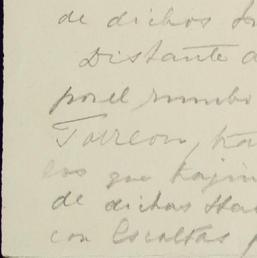 de dichos
Distante
por el rumbo
Torreon,
los que
de dichas Ha
con Escoltas